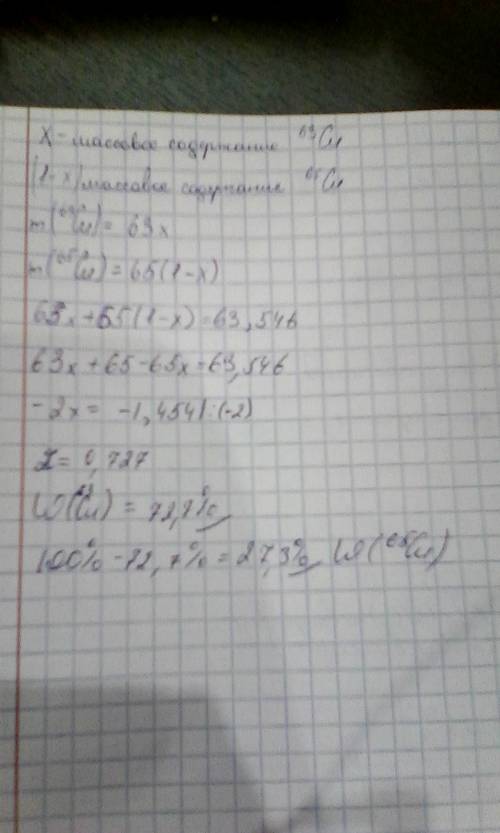 X - массовое содержание ⁶³Cu
(1-x) массовое содержание ⁶⁵Cu
m(⁶³Cu) = 63x
m(⁶⁵Cu) = 65(1-x)
63x + 65(1-x) = 63,546
63x + 65 - 65x = 63,546
-2x = -1,454 | :(-2)
X = 0,727
W(⁶³Cu) = 72,7%
100% - 72,7% = 27,3% W(⁶⁵Cu)